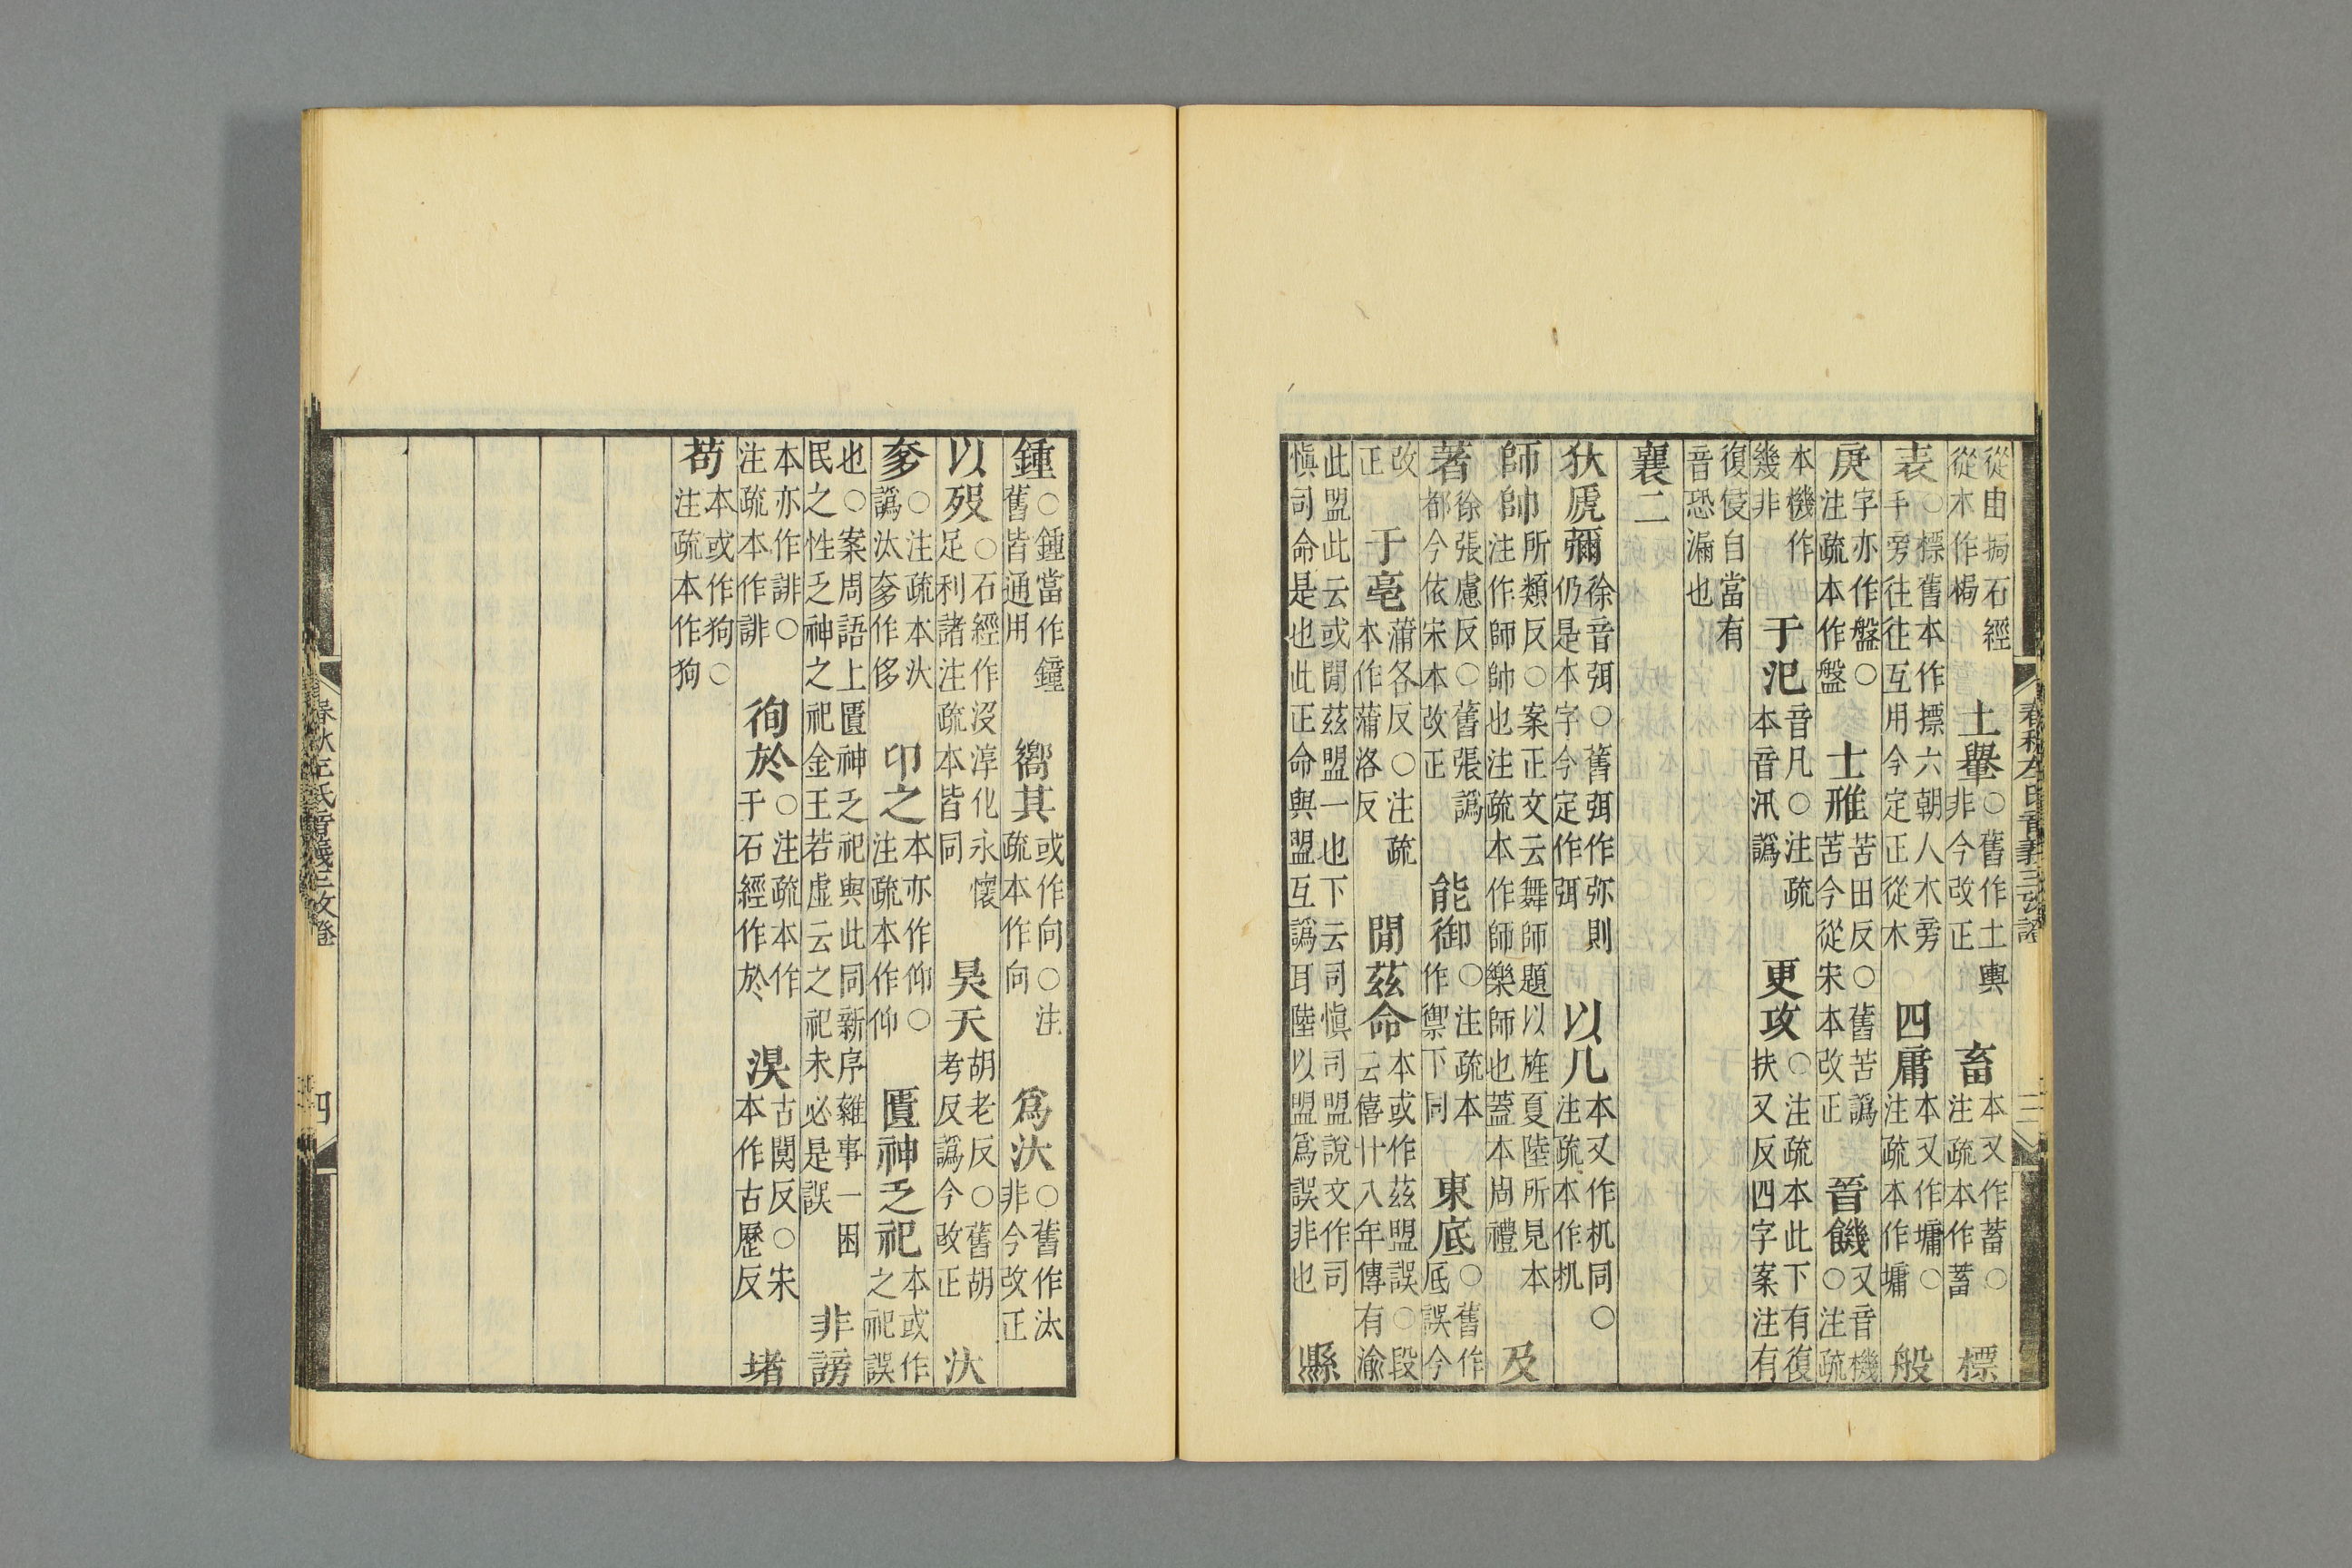 從由挶石經從木作梮　土轝○舊作土輿非今改正　畜本又作蓄○注疏本作蓄　標
表○標舊本作摽六朝人木旁手旁往往互用今定正從木　四庸本又作墉○注疏本作墉　般
庚字亦作盤○注疏本作盤　士雃苦田反○舊苦譌苦今從宋本改正　晉饑○又音機注疏
本機作幾非　于氾音凡○注疏本音汎譌　更攻○注疏本此下有復扶又反四字案注有
復侵自當有音恐漏也
襄二
狄虒彌徐音弭○舊弭作弥則仍是本字今定作弭　以几本又作机同○注疏本作机
師帥所類反○案正文云舞師題以旌夏陸所見本注作師帥也注疏本作師樂師也蓋本周禮　及
著徐張慮反○舊張譌都今依宋本改正　能御○注疏本作禦下同　東底○舊作厎誤今
改正　于亳蒲各反○注疏本作蒲洛反　閒茲命本或作茲盟誤○段云僖廿八年傳有渝
此盟此云或閒茲盟一也下云司愼司盟說文作司愼司命是也此正命與盟互譌耳陸以盟爲誤非也　縣
春秋左氏音義三攷證　三
鍾○鍾當作鐘舊皆通用　嚮其或作向○注疏本作向　爲汏○舊作汰非今改正
以歿○石經作沒淳化永懷足利諸注疏本皆同　昊天胡老反○舊胡考反譌今改正　汏
奓○注疏本汏譌汰奓作侈　卬之本亦作仰○注疏本作仰　匱神乏祀本或作之祀誤
也○案周語上匱神乏祀與此同新序雜事一困民之性乏神之祀金王若虛云之祀未必是誤　非謗
本亦作誹○注疏本作誹　徇於○注疏本作于石經作於　淏古闃反○宋本作古歷反　堵
苟本或作狗○注疏本作狗
春秋左氏音義三攷證　四